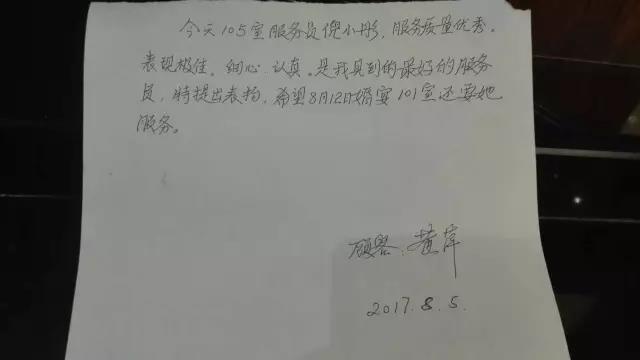 今天105室服务员倪小彤，服务质量优秀。
表现极佳。细心、认真。是我见到的最好的服务
员，特提出表扬，希望8月12日婚宴101室还要她
服务。
顾客：黄萍
2017.8.5.